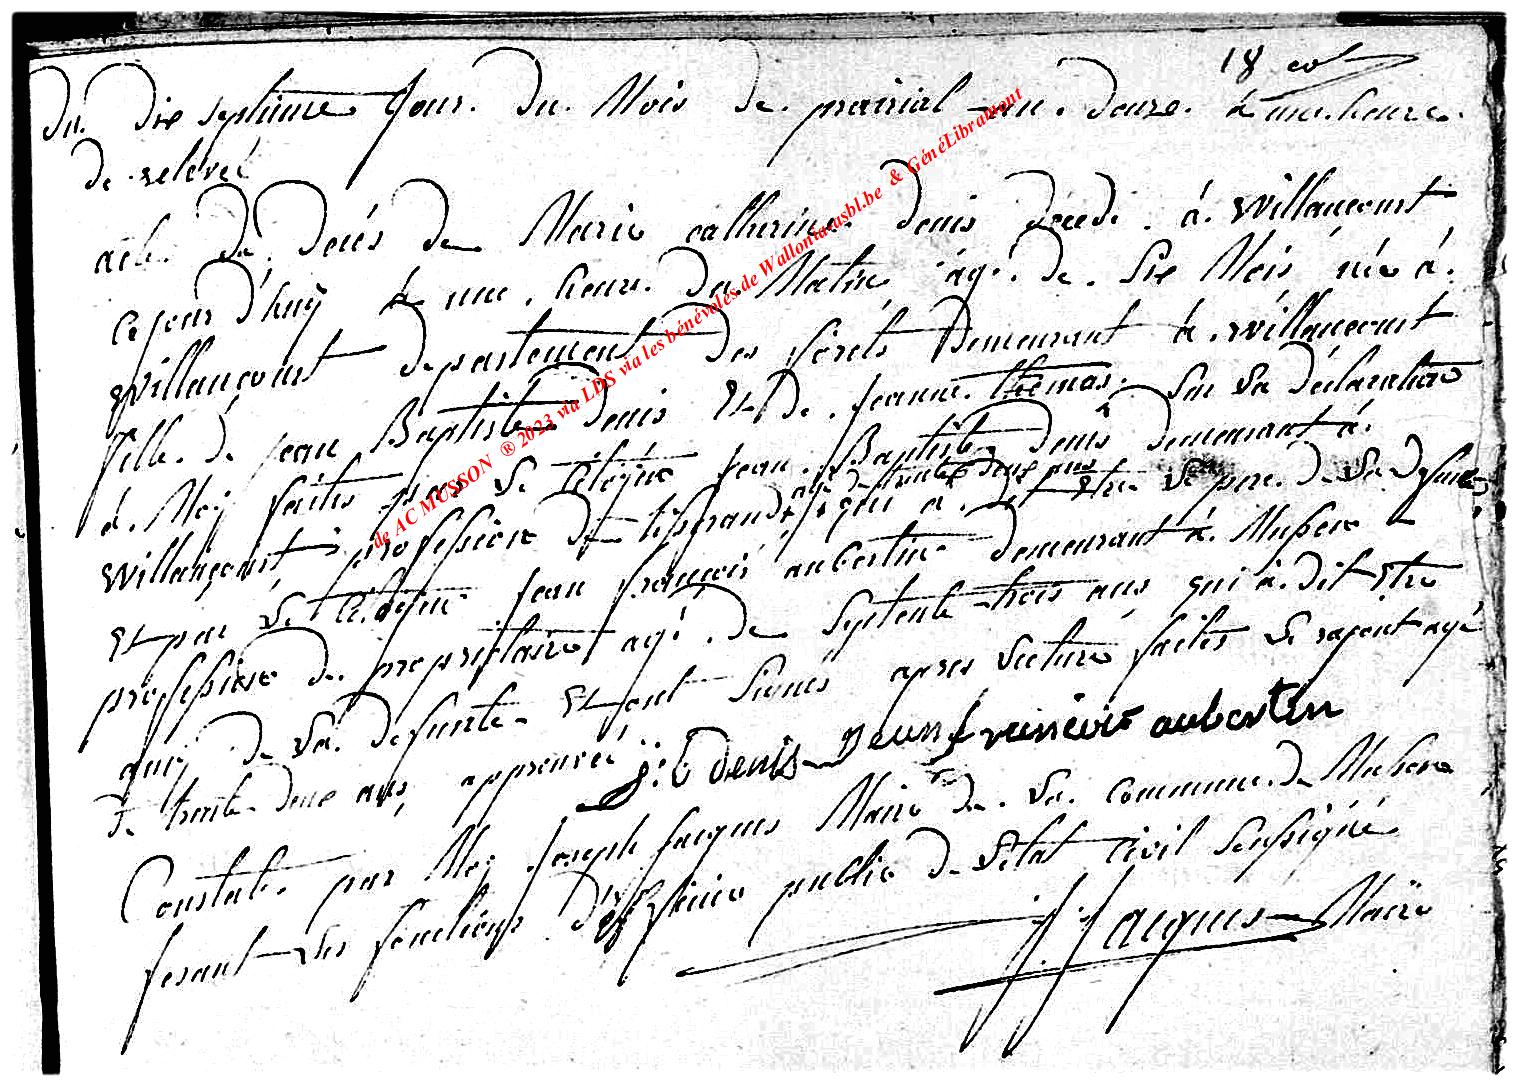 18 col
du. dix septieme Jour. du. Mois de. prairial an. douze. à une. heure.
de relevée
acte de décés de Marie catherine. denis décédé. à. Willancourt
ce jour d'huÿ à une. heure. du. Matin agé. de. Six Mois née à.
Willancourt departement des foréts demeurant à. Willancourt
fille. de jean Baptiste denis Et de. jeanne. thomas. Sur La déclaration
à. Moÿ faites par Le Citoÿne jean. Baptiste denis demeurant à.
agé de trente deux ans
Willancourt profession de tisserand qui a. Etre Le pere. de La defunte
Et par Le Citoÿne jean françois aubertin demeurant à. Musson
profession de propriétaire agé. de Septente trois ans qui à. dit Etre
amÿ de La. defunte Et ont Signés apres Lecture faites Le rajout agé
de trente deux ans, approuvée j. b denis jean francois aubertin
Constaté. par Moÿ Joseph Jacques Maire de. La. Commune. de Musson
fesant Les fonctions d'officier public de L'état Civil Soussigné.
J. Jacques Maire
de AC MUSSON ® 2023 via LDS via les bénévoles de Walloniacusbl.be & GénéLibramont